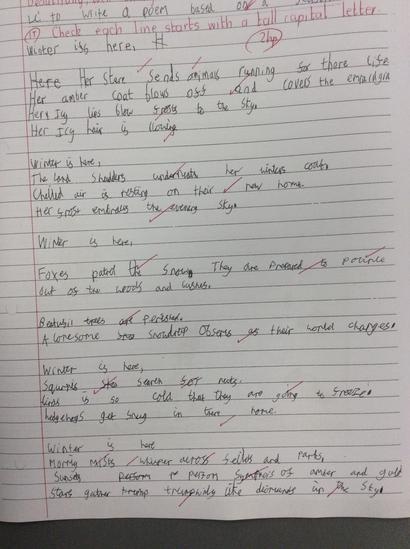 LC to write a poem based on a
(T) Check each line starts with a tall capital letter.
Winter iss here, (2hp)
Here Her stare sends animals running for there life
Her amber coat blows off and covers the
Her Icy lips blow frosts to the sky.
Her Icy hair is
Winter is here,
The land shudders underneath her winters coat,
Chilled air is resting on their new home.
Her frost embraces the evening sky.
Winter is here,
Foxes patrol the snow. They are prepared to pounce
out of the woods and bushes.
Beatufil trees are perished.
A lonesome snowdrop observes as their world changes.
Winter is here,
Squirrels search for nuts.
birds is so cold that they are going to freeze.
hedgehogs get snug in there home.
Winter is here
Mornig mists whisper across feilds and parks,
Sunsets perform of amber and gold
Stars gather like diamonds in the sky.